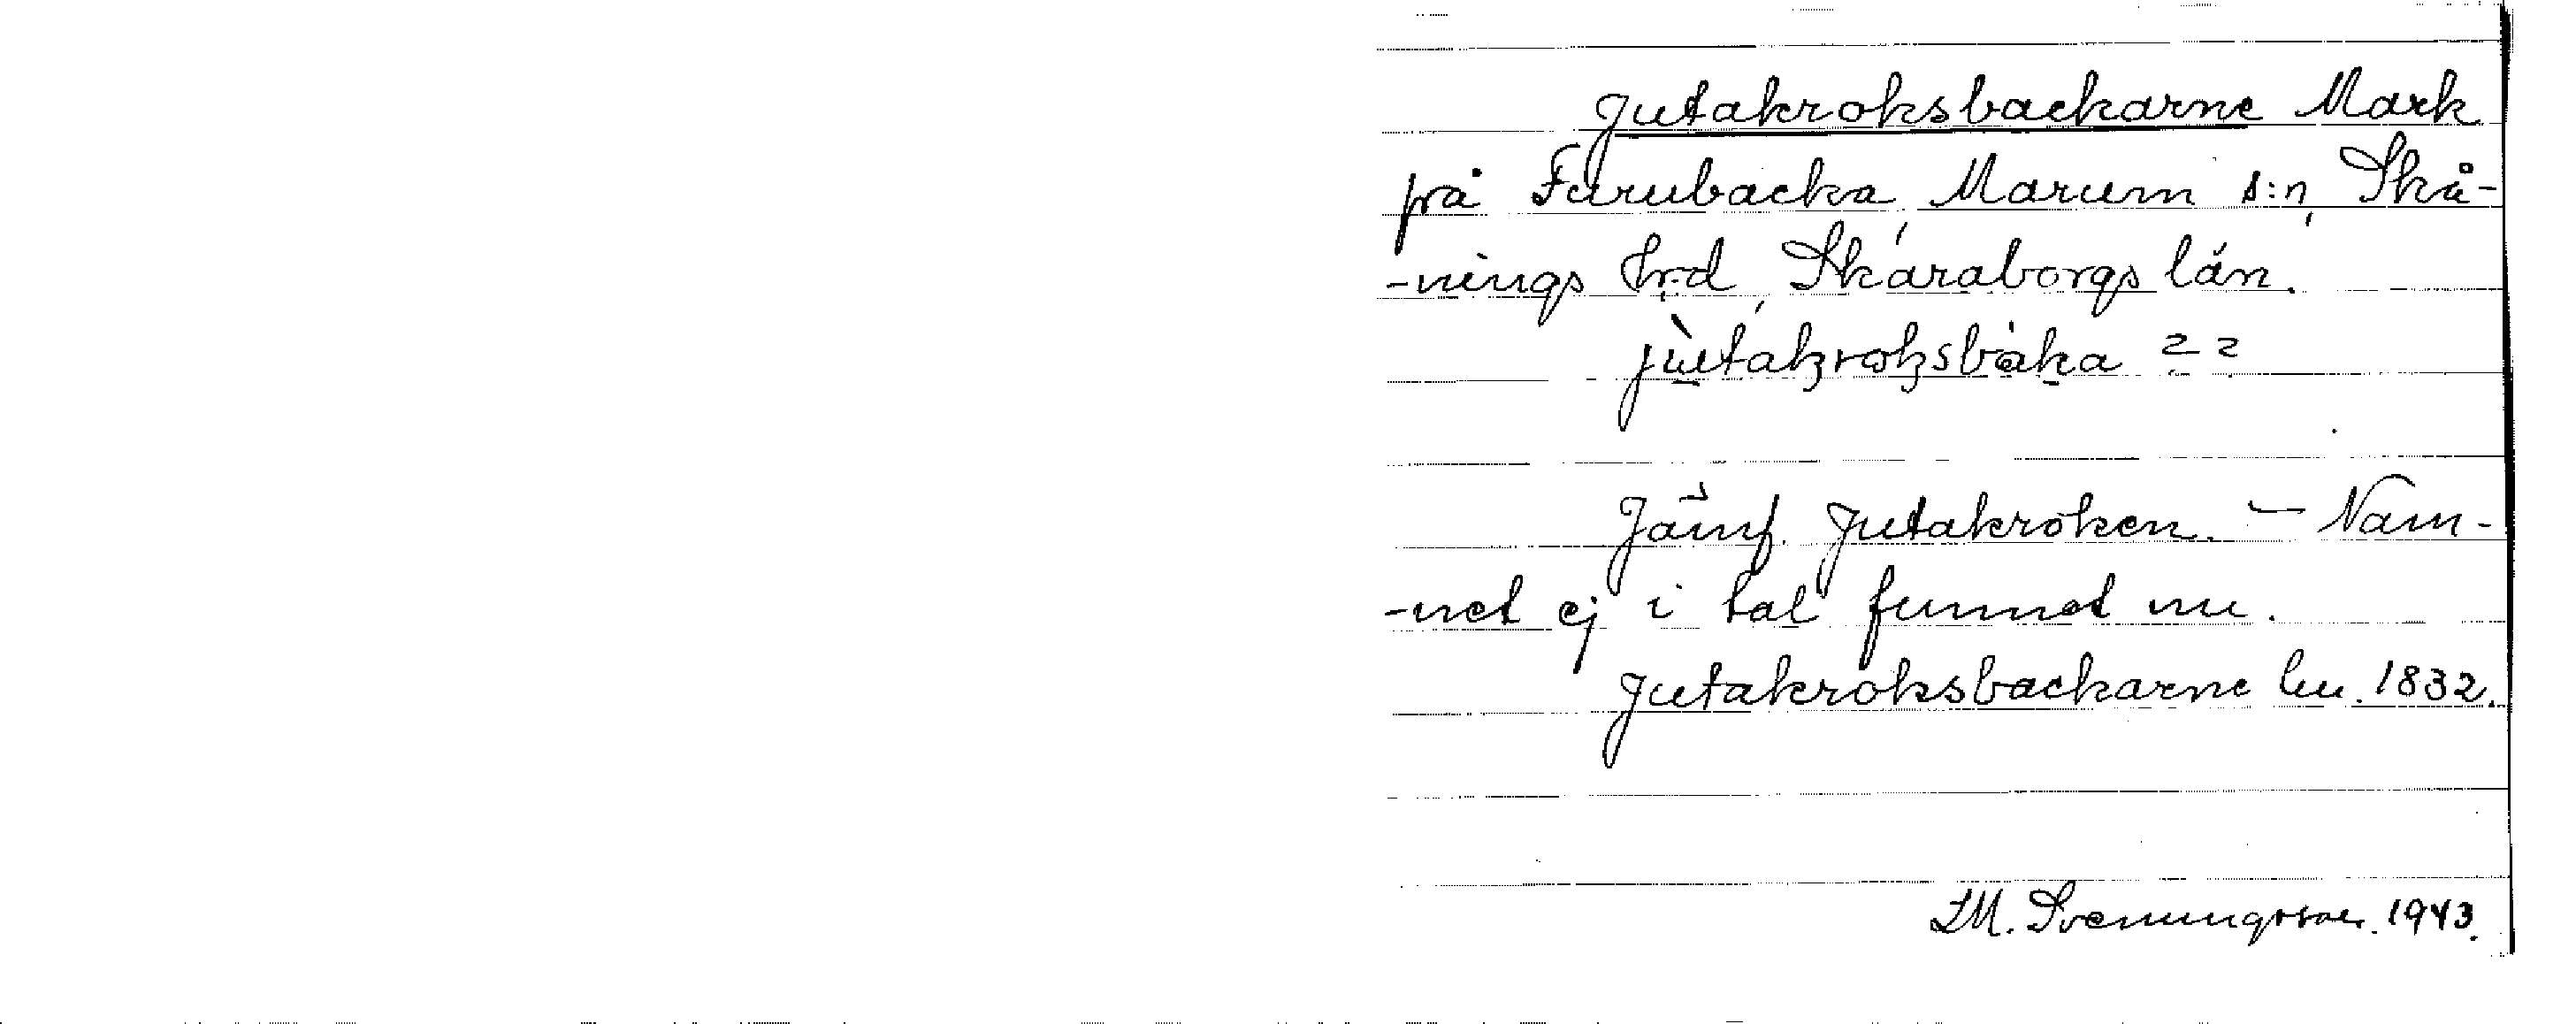 Jutakroksbackarne Mark
på Furubacka, Marum s:n, Skå-
-nings hrd, Skaraborgs län.
jutakroksbaka 2 2
Jämf. Jutakroken. — Nam-
-net ej i tal funnet nu.
Jutakroksbackarne lm. 1832.
I.M. Svenungsson. 1943.